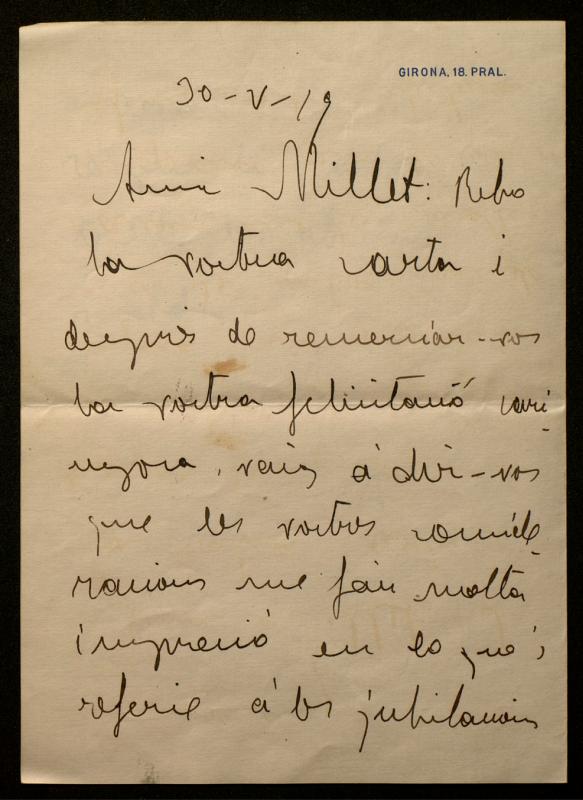 GIRONA, 18. PRAL.
30-V-19
Amic Millet: Rebo
la vostra carta i
després de remerciar-vos
la vostra felicitació cari-
nyosa, vaig á dir-vos
que les vostres considé-
racions me fan molta
impresió en lo que's
refereix á les jubilacions